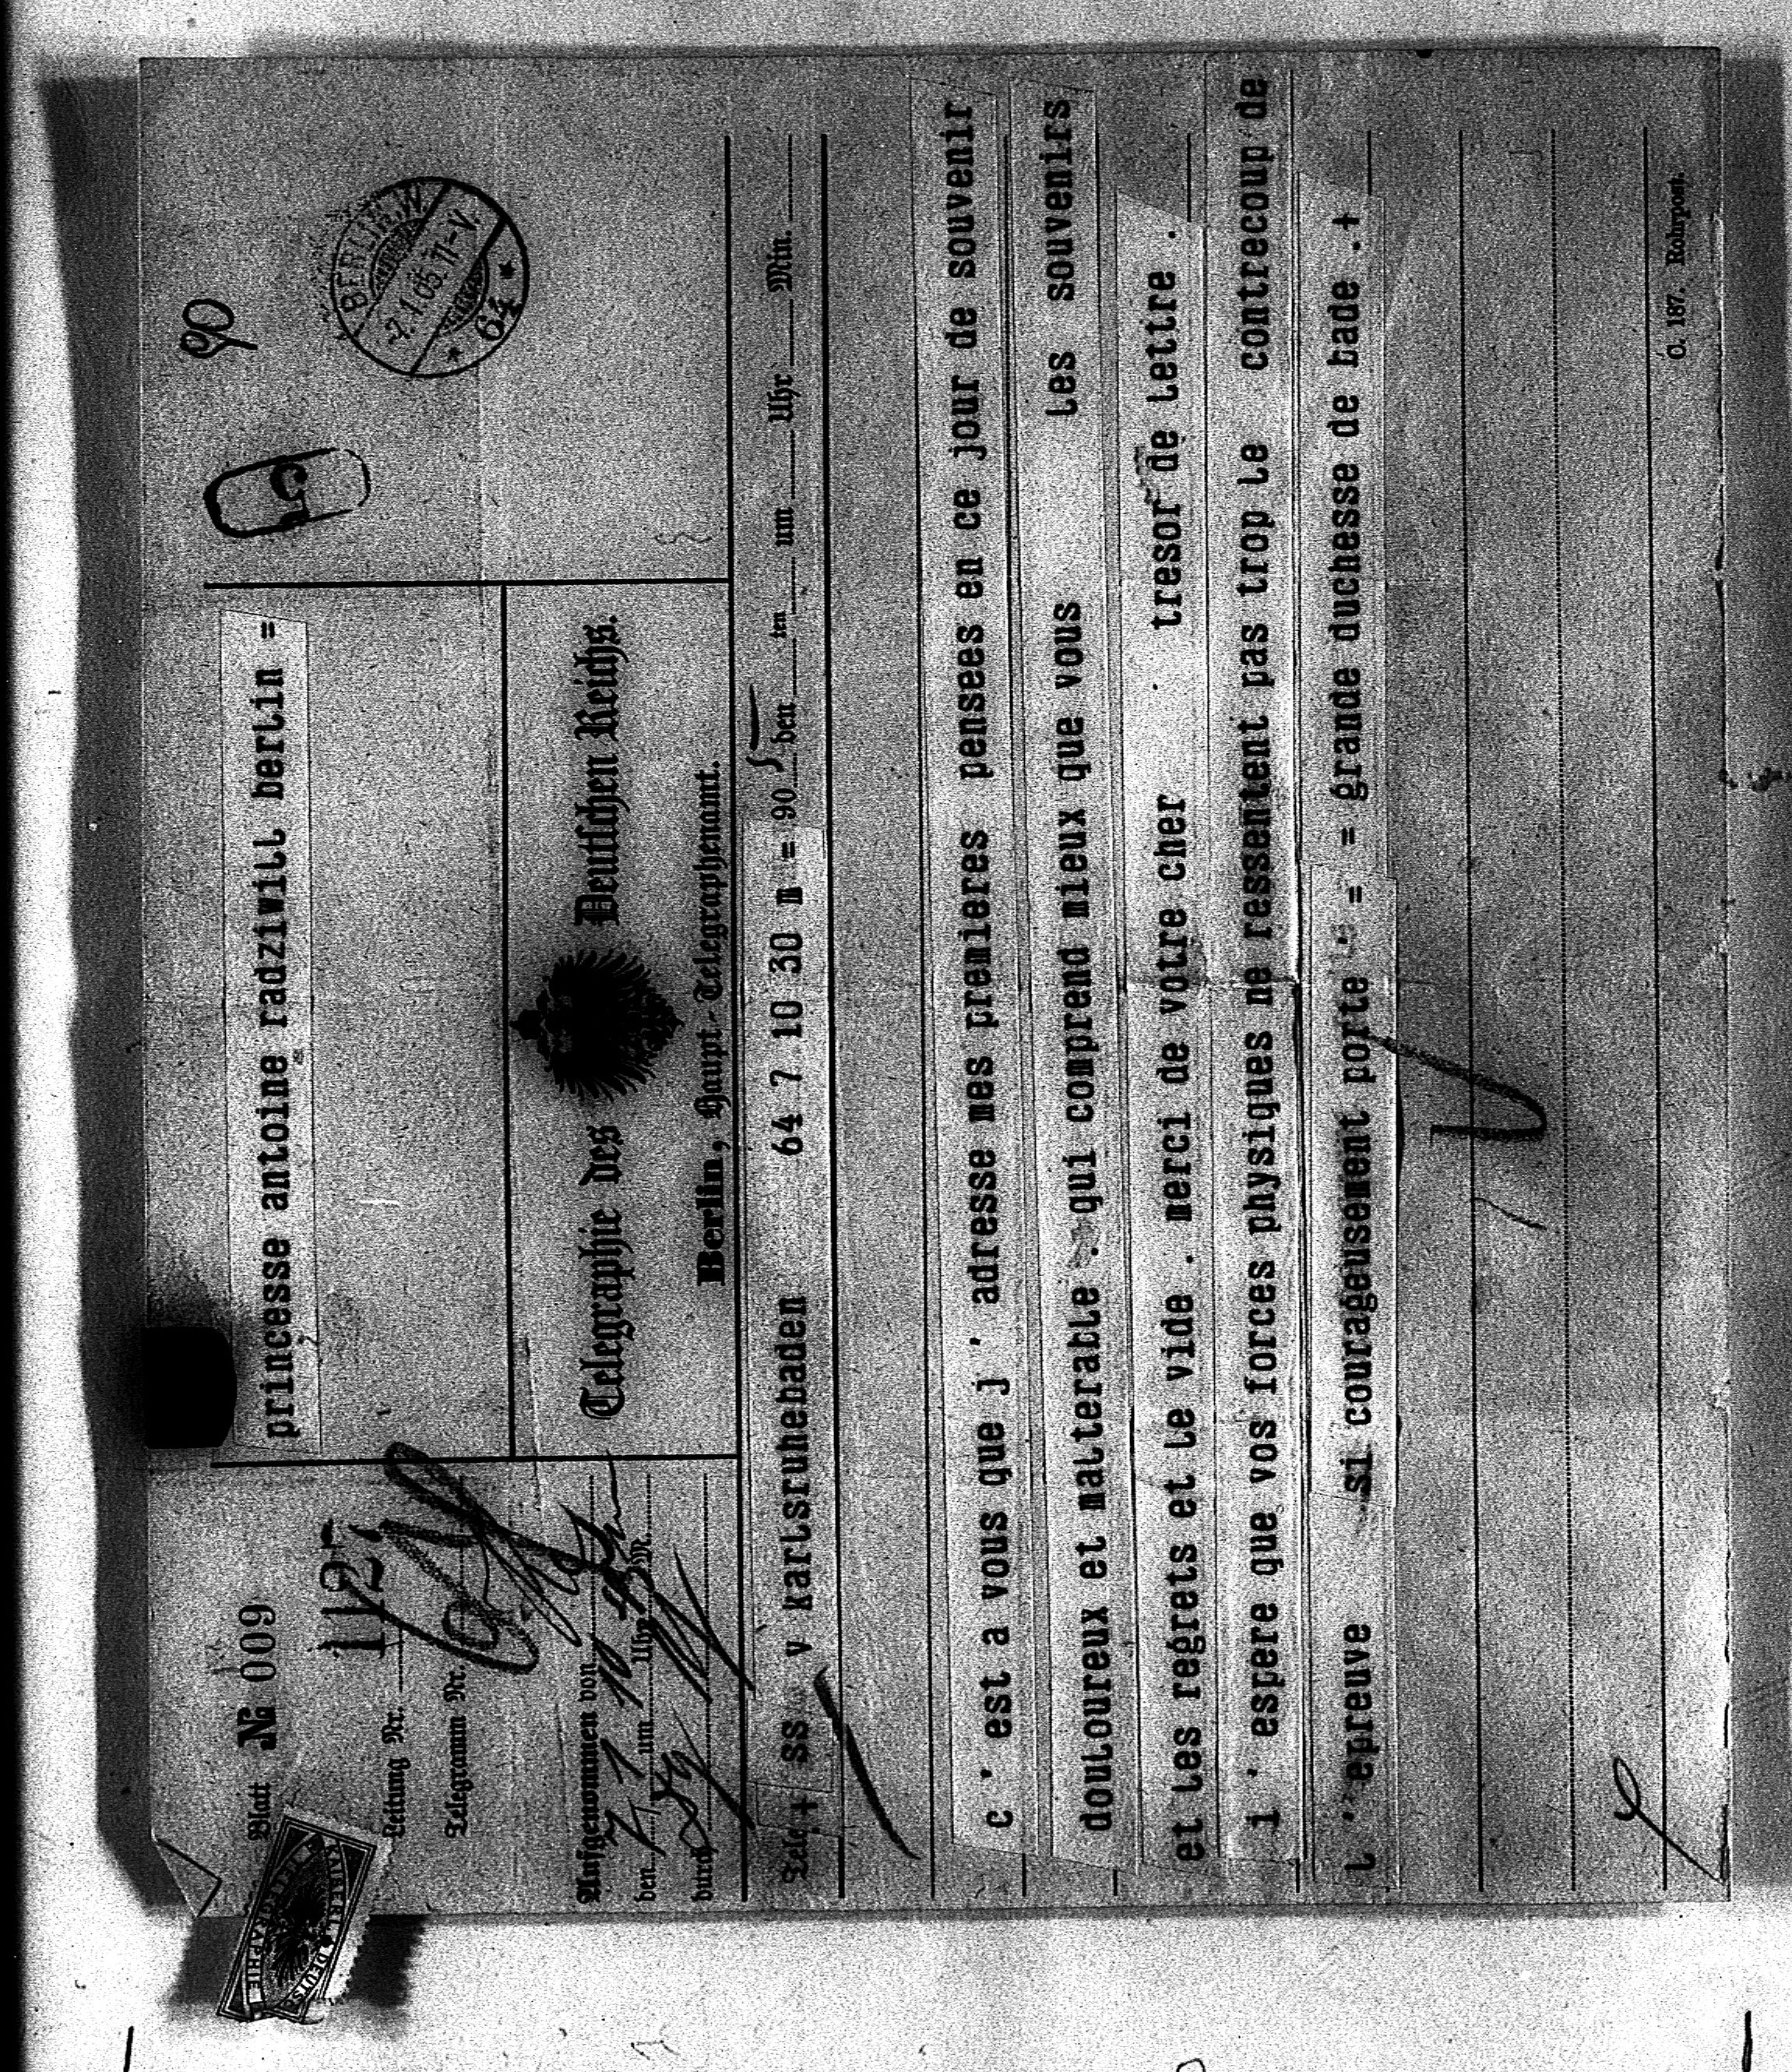 Blatt № 009
Leitung Nr. 112
Telegramm Nr.
Aufgenommen von
den 7/1 um 10 Uhr M.
durch
princesse antoine radziwill berlin =
Telegraphie des Deutschen Reichs.
Berlin, Haupt-Telegraphenamt.
5
90
BERLIN.W
-7.1.05.11-V.
* 64 *
KAISERL. DEUTSCHE TELEGRAPHIE
Tele + ss v karlsruhebaden 64 7 10 30 m = 90 5 den ten um Uhr Min.
c ' est a vous que j ' adresse mes premieres pensees en ce jour de souvenir
douloureux et malterable . qui comprend mieux que vous les souvenirs
et les regrets et le vide . merci de votre cher . tresor de lettre .
i ' espere que vos forces physiques ne ressentent pas trop le contrecoup de
l ' epreuve si courageusement porte = = grande duchesse de bade .+
C. 187. Rohrpost.